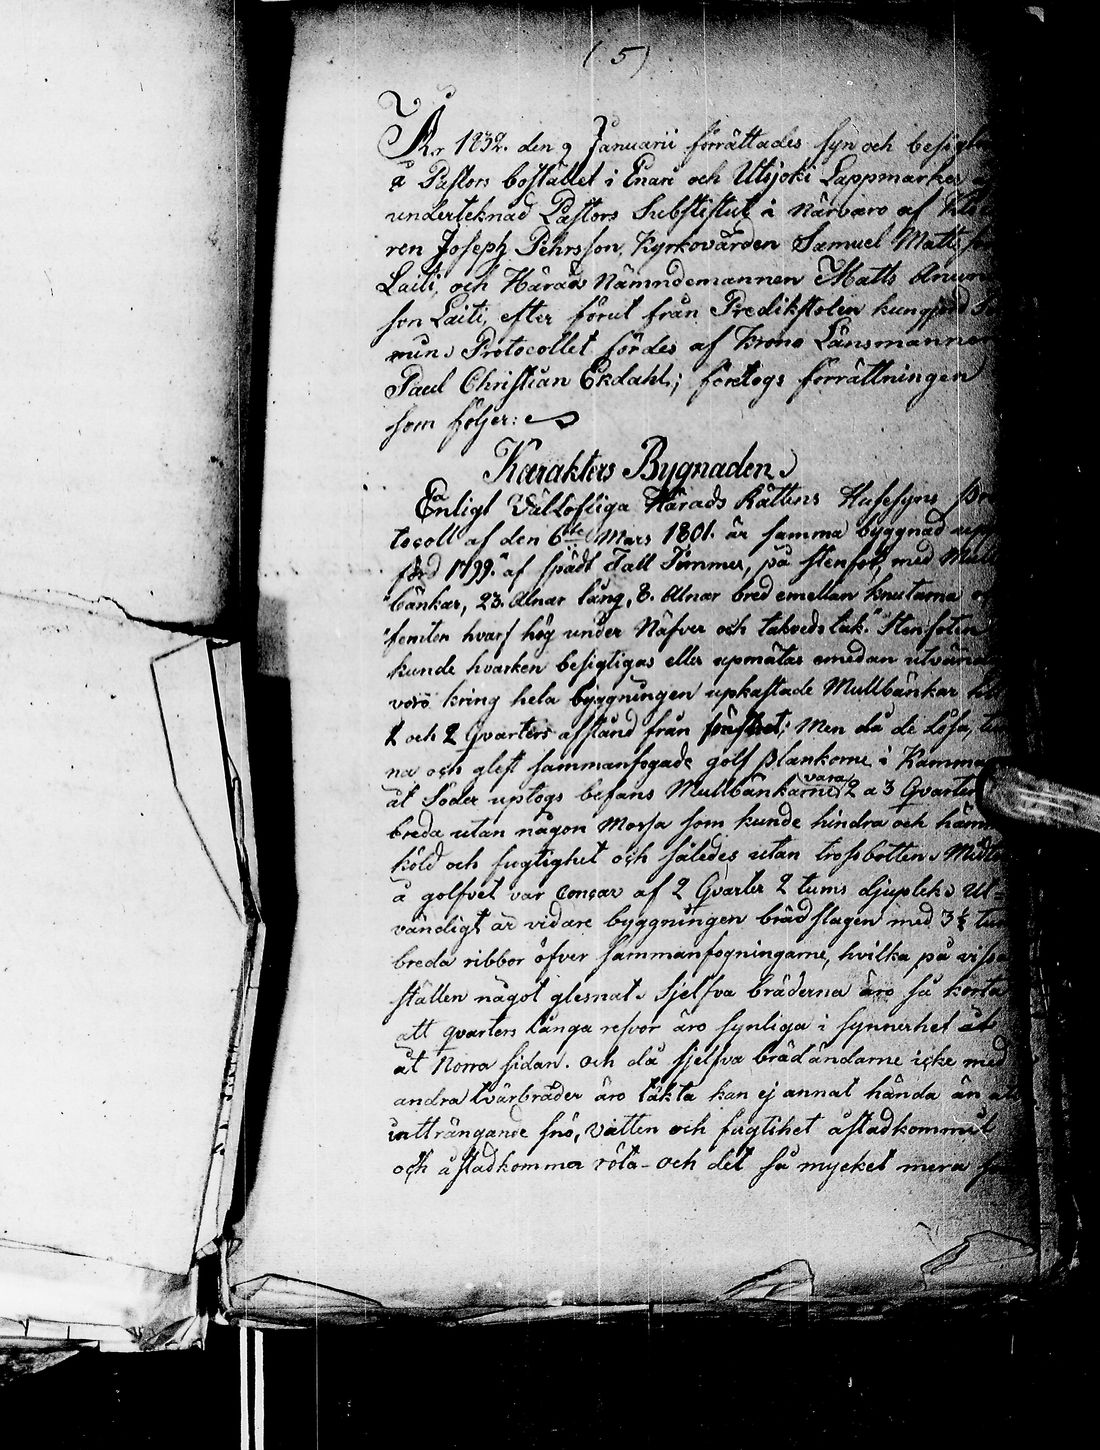 (5)
År 1832. den 9 Januarii förrättades syn och
å Pastors bostället i Enare och Utsjoki Lappmarker
underteknad Pastors Substitut i närvaro af
ren Joseph Pehrsson, Kyrkovärden Samuel Matts
Laiti, och Härads Nämndemannen Matts
son Laiti, efter förut från Predikstolen kungjord
min Protocollet fördes af Krono Länsmannen
Paul Christian Ekdahl; företogs förrättningen
som följer:
Karakters Bygnaden
Enligt Vällofliga Härads Rättens Husesyns Pro
tocoll af den 6te Mars 1801. är samma byggnad upp
förd 1799. "af spädt Tall Timmer, på stenfot, med Mull
bänkar, 23. Alnar lång, 8. Alnar bred emellan knutarna
"femton hvarf hög under Näfver och takveds tak." Stenfoten
kunde hvarken besigtigas eller upmätas emedan utvänd
voro kring hela byggningen upkastade Mullbänkar till
1 och 2 qvarters afstånd från Men då de lösa,
na och glest sammanfogade golf plankorne i Kammar
åt Söder uptogs befans Mullbänkarne vara 2 a 3 Qvarter
breda utan någon Mossa som kunde hindra och
köld och fugtighet och således utan trossbotten.
å golfvet var concav af 2 Qvarter 2 tums djuplek. Ut=
vändigt är vidare byggningen brädslagen med 3½ tum
breda ribbor öfver sammanfogningarne, hvilka på vissa
ställen något glesnat. Sjelfva bräderna äro så korta
att qvarters långa refvor äro synliga i synnerhet åt
åt Norra sidan. och då sjelfva brädändarne icke med
andra tvärbräder äro täkta kan ej annat hända än att
inträngande snö, vatten och fugtihet åstadkommit
och åstadkomma röta - och det så mycket mera